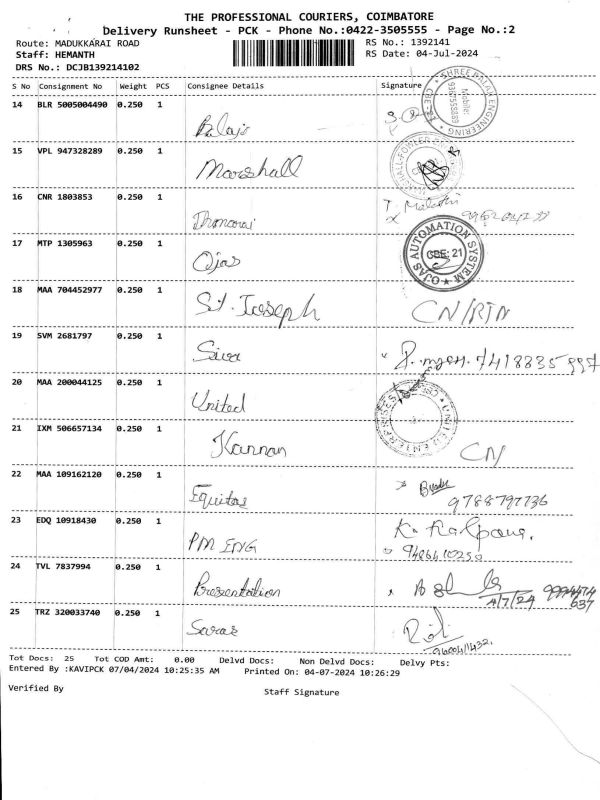 THE PROFESSIONAL COURIERS, COIMBATORE
Delivery Runsheet - PCK - Phone No.:0422-3505555 - Page No.:2
Route: MADUKKARAI ROAD RS No.: 1392141
Staff: HEMANTH RS Date: 04-Jul-2024
DRS No.: DCJB139214102
S No Consignment No Weight PCS Consignee Details Signature
14 BLR 5005004490 0.250 1 Balaji
15 VPL 947328289 0.250 1 Marshall
16 CNR 1803853 0.250 1
17 MTP 1305963 0.250 1 Ojas OJAS AUTOMATION SYSTEM CBE: 21
18 MAA 704452977 0.250 1 St. Joseph CN/RTN
19 SVM 2681797 0.250 1 Siva 7418835997
20 MAA 200044125 0.250 1 United UNITED ENTERPRISES
21 IXM 506657134 0.250 1 Kannan CN
22 MAA 109162120 0.250 1 Equitas 9788797736
23 EDQ 10918430 0.250 1 PM ENG K. Kalpana.
24 TVL 7837994 0.250 1 Presentation 4/7/24
25 TRZ 320033740 0.250 1 Saras
Tot Docs: 25 Tot COD Amt: 0.00 Delvd Docs: Non Delvd Docs: Delvy Pts:
Entered By :KAVIPCK 07/04/2024 10:25:35 AM Printed On: 04-07-2024 10:26:29
Verified By Staff Signature